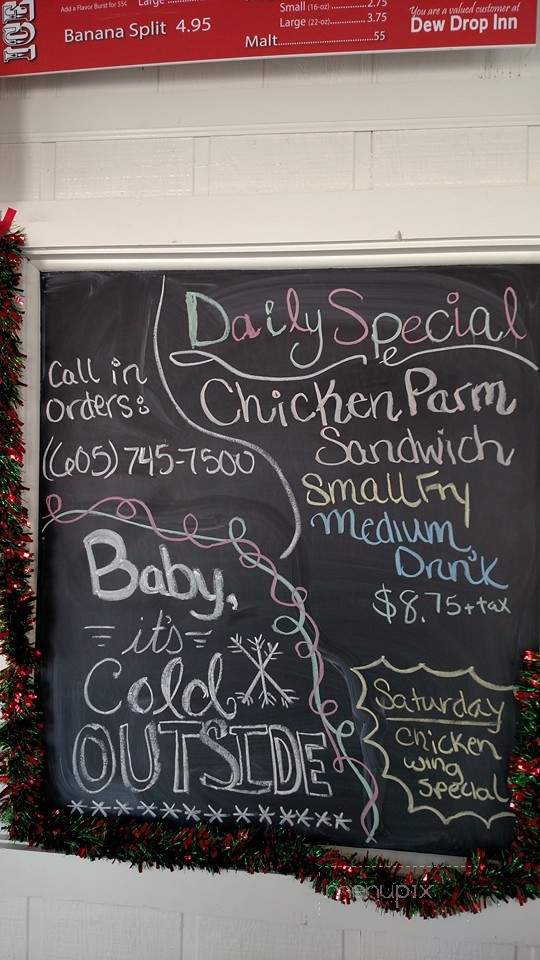 ICE
Add a Flavor Burst for 55¢
Banana Split 4.95
Large
Small (16-oz) 2.75
Large (22-oz) 3.75
Malt .55
You are a valued customer at
Dew Drop Inn
Daily Special
Chicken Parm
Sandwich
Small Fry
Medium
Drink
$8.75 + tax
Call in
Orders:
(605) 745-7500
Baby,
it's
Cold
OUTSIDE
Saturday
Chicken
wing
Special
menupix